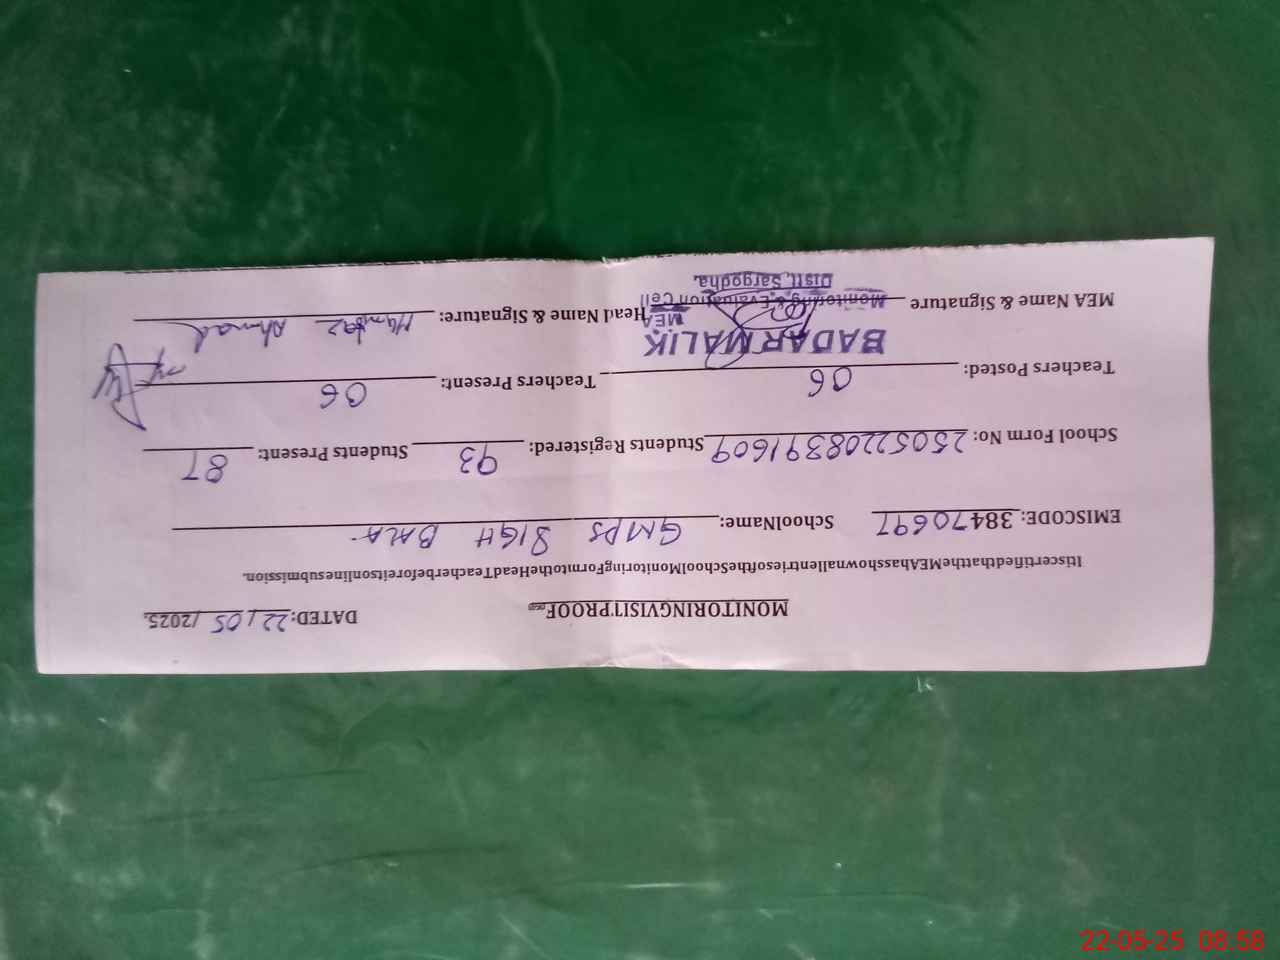 MONITORINGVISITPROOF
DATED: 22/05 /2025.
ItiscertifiedthattheMEAhasshownallentriesoftheSchoolMonitoringFormtotheHeadTeacherbeforeitsonlinesubmission.
EMISCODE: 38470697 SchoolName: GMPS SIGH BALA
School Form No: 25052208391609 Students Registered: 93 Students Present: 87
Teachers Posted: 06 Teachers Present: 06
BADAR MALIK
MEA
MEA Name & Signature Monitoring & Evaluation Cell Head Name & Signature: Ahmad
Distt. Sargodha.
22-05-25 08:58